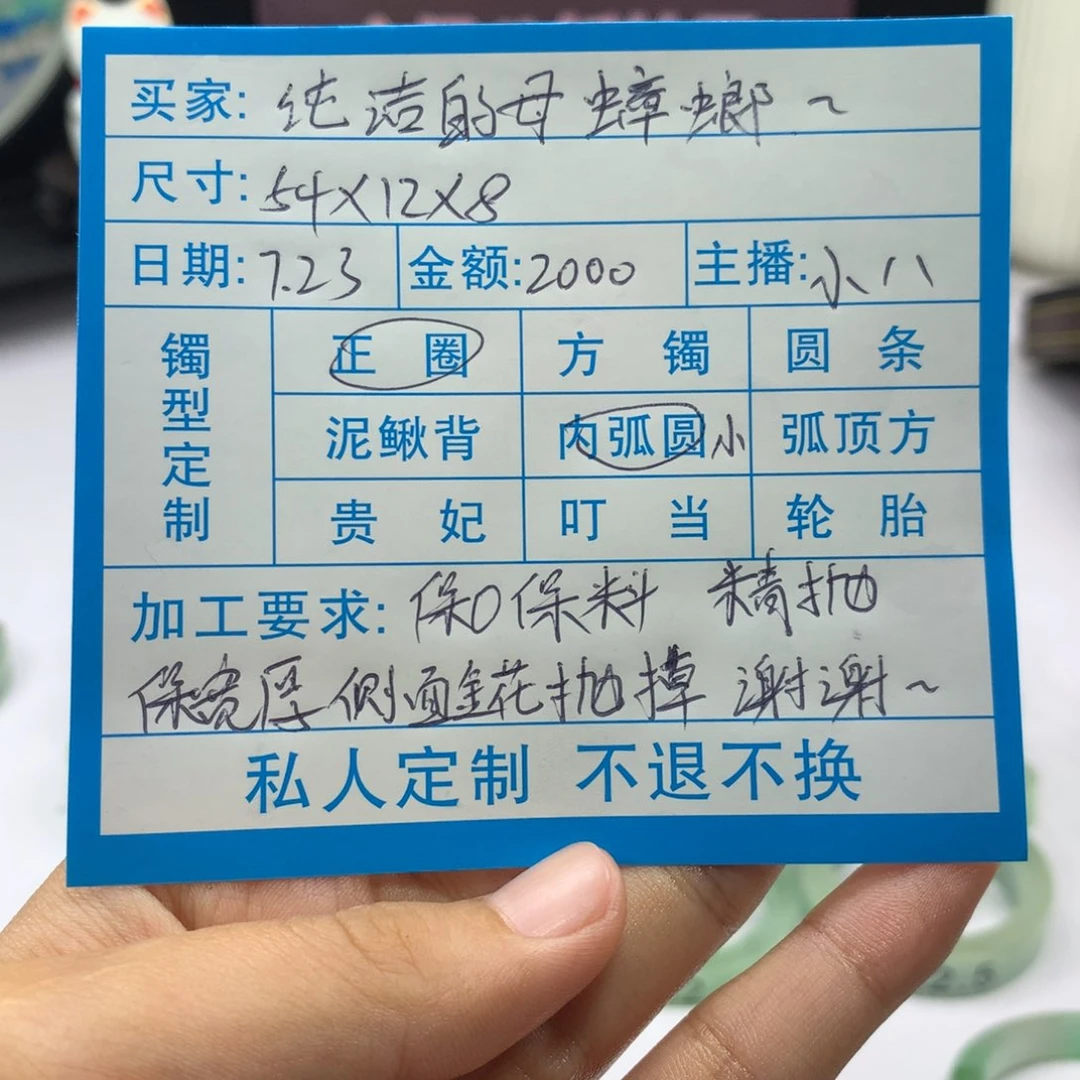 买家: 纯洁的母蟑螂~
尺寸: 54X12X8
日期: 7.23 金额: 2000 主播: 小八
镯型定制
正圈 方镯 圆条
泥鳅背 内弧圆小 弧顶方
贵妃 叮当 轮胎
加工要求: 保0保料 精抛
保宽厚 侧面雪花抛掉 谢谢~
私人定制 不退不换
2.5